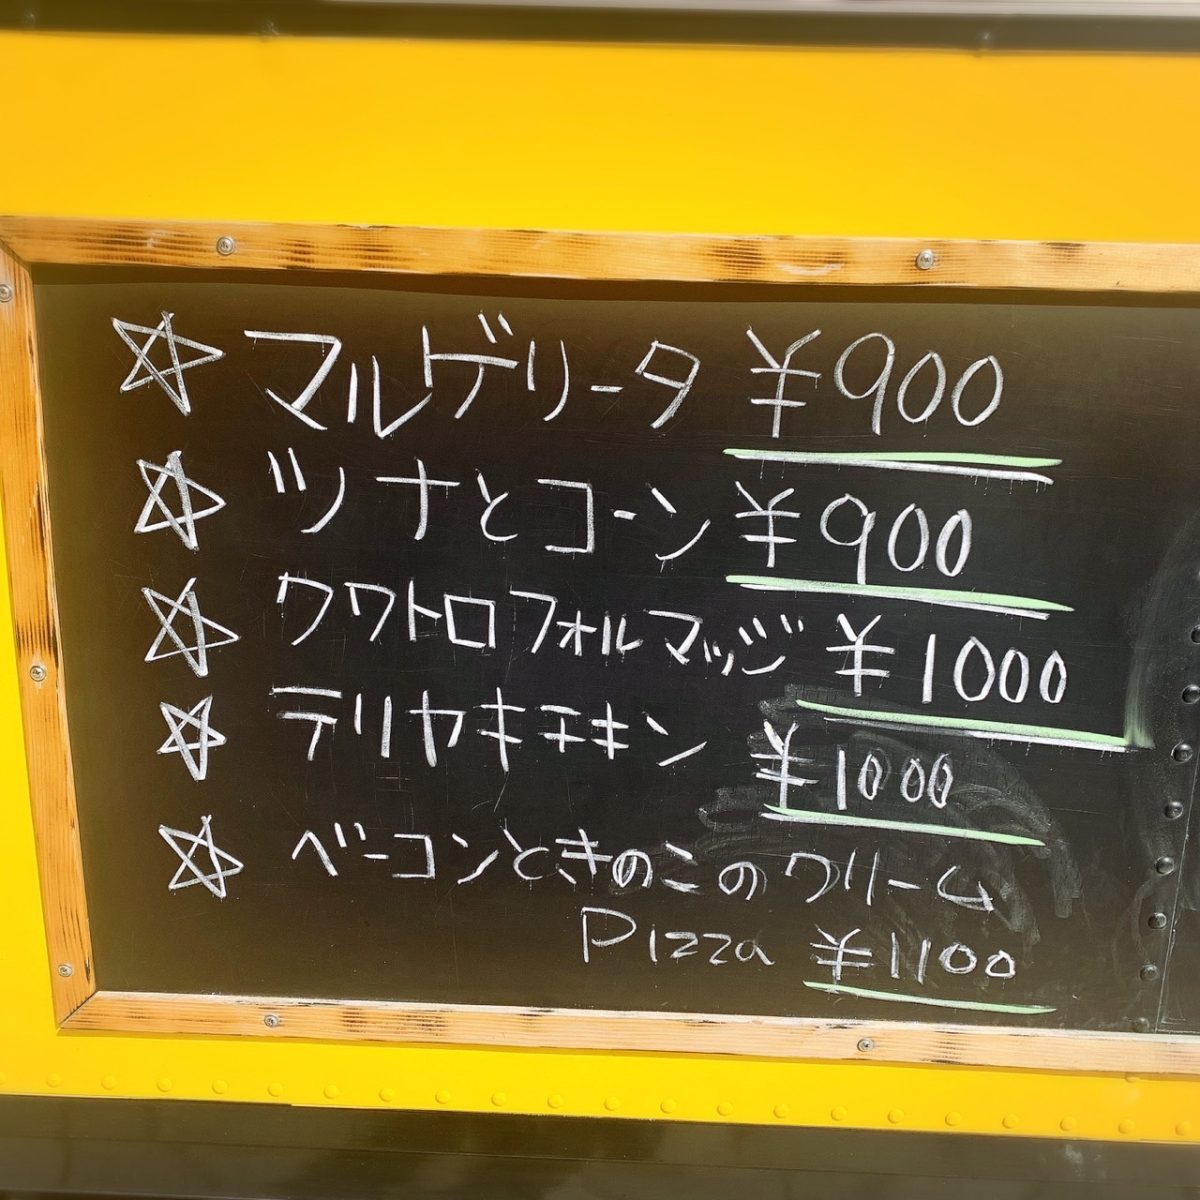 ☆ マルゲリータ ¥900
☆ ツナとコーン ¥900
☆ クワトロフォルマッジ ¥1000
☆ テリヤキチキン ¥1000
☆ ベーコンときのこのクリーム
Pizza ¥1100